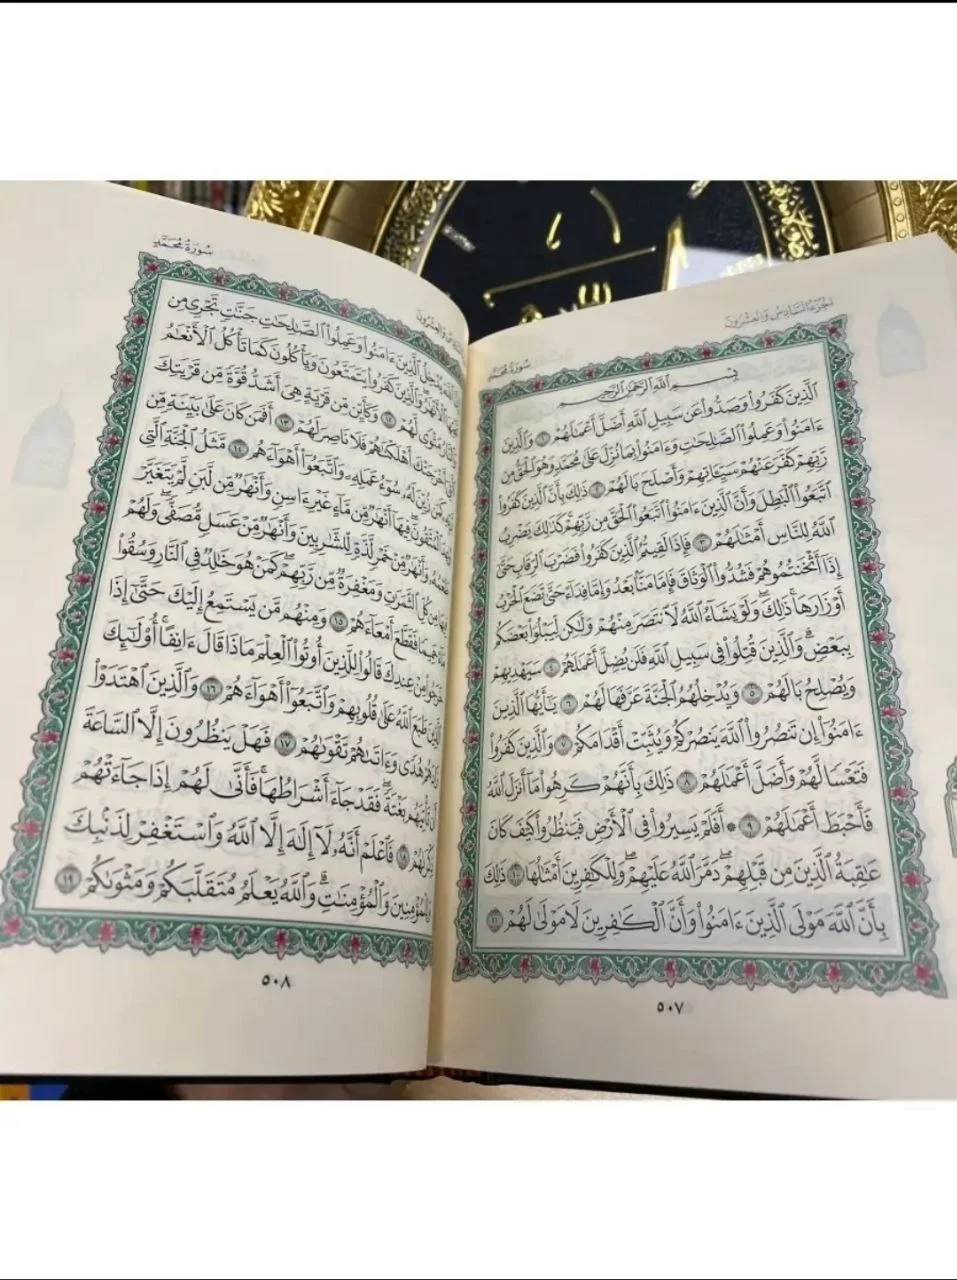 الجزء السادس والعشرون
سُورَةُ مُحَمَّد
بِسْمِ ٱللَّهِ ٱلرَّحْمَٰنِ ٱلرَّحِيمِ
ٱلَّذِينَ كَفَرُوا۟ وَصَدُّوا۟ عَن سَبِيلِ ٱللَّهِ أَضَلَّ أَعْمَٰلَهُمْ ١ وَٱلَّذِينَ
ءَامَنُوا۟ وَعَمِلُوا۟ ٱلصَّٰلِحَٰتِ وَءَامَنُوا۟ بِمَا نُزِّلَ عَلَىٰ مُحَمَّدٍ وَهُوَ ٱلْحَقُّ مِن
رَّبِّهِمْ كَفَّرَ عَنْهُمْ سَيِّـَٔاتِهِمْ وَأَصْلَحَ بَالَهُمْ ٢ ذَٰلِكَ بِأَنَّ ٱلَّذِينَ كَفَرُوا۟
ٱتَّبَعُوا۟ ٱلْبَٰطِلَ وَأَنَّ ٱلَّذِينَ ءَامَنُوا۟ ٱتَّبَعُوا۟ ٱلْحَقَّ مِن رَّبِّهِمْ كَذَٰلِكَ يَضْرِبُ
ٱللَّهُ لِلنَّاسِ أَمْثَٰلَهُمْ ٣ فَإِذَا لَقِيتُمُ ٱلَّذِينَ كَفَرُوا۟ فَضَرْبَ ٱلرِّقَابِ حَتَّىٰٓ
إِذَآ أَثْخَنتُمُوهُمْ فَشُدُّوا۟ ٱلْوَثَاقَ فَإِمَّا مَنًّۢا بَعْدُ وَإِمَّا فِدَآءً حَتَّىٰ تَضَعَ ٱلْحَرْبُ
أَوْزَارَهَا ذَٰلِكَ وَلَوْ يَشَآءُ ٱللَّهُ لَٱنتَصَرَ مِنْهُمْ وَلَٰكِن لِّيَبْلُوَا۟ بَعْضَكُم
بِبَعْضٍ وَٱلَّذِينَ قُتِلُوا۟ فِى سَبِيلِ ٱللَّهِ فَلَن يُضِلَّ أَعْمَٰلَهُمْ ٤ سَيَهْدِيهِمْ
وَيُصْلِحُ بَالَهُمْ ٥ وَيُدْخِلُهُمُ ٱلْجَنَّةَ عَرَّفَهَا لَهُمْ ٦ يَٰٓأَيُّهَا ٱلَّذِينَ
ءَامَنُوٓا۟ إِن تَنصُرُوا۟ ٱللَّهَ يَنصُرْكُمْ وَيُثَبِّتْ أَقْدَامَكُمْ ٧ وَٱلَّذِينَ كَفَرُوا۟
فَتَعْسًا لَّهُمْ وَأَضَلَّ أَعْمَٰلَهُمْ ٨ ذَٰلِكَ بِأَنَّهُمْ كَرِهُوا۟ مَآ أَنزَلَ ٱللَّهُ
فَأَحْبَطَ أَعْمَٰلَهُمْ ٩ ۞ أَفَلَمْ يَسِيرُوا۟ فِى ٱلْأَرْضِ فَيَنظُرُوا۟ كَيْفَ كَانَ
عَٰقِبَةُ ٱلَّذِينَ مِن قَبْلِهِمْ دَمَّرَ ٱللَّهُ عَلَيْهِمْ وَلِلْكَٰفِرِينَ أَمْثَٰلُهَا ١٠ ذَٰلِكَ
بِأَنَّ ٱللَّهَ مَوْلَى ٱلَّذِينَ ءَامَنُوا۟ وَأَنَّ ٱلْكَٰفِرِينَ لَا مَوْلَىٰ لَهُمْ ١١
٥٠٧
والعشرون
سُورَةُ مُحَمَّد
يُدْخِلُ ٱلَّذِينَ ءَامَنُوا۟ وَعَمِلُوا۟ ٱلصَّٰلِحَٰتِ جَنَّٰتٍ تَجْرِى مِن
ٱلْأَنْهَٰرُ وَٱلَّذِينَ كَفَرُوا۟ يَتَمَتَّعُونَ وَيَأْكُلُونَ كَمَا تَأْكُلُ ٱلْأَنْعَٰمُ
مَثْوًى لَّهُمْ ١٢ وَكَأَيِّن مِّن قَرْيَةٍ هِىَ أَشَدُّ قُوَّةً مِّن قَرْيَتِكَ
أَخْرَجَتْكَ أَهْلَكْنَٰهُمْ فَلَا نَاصِرَ لَهُمْ ١٣ أَفَمَن كَانَ عَلَىٰ بَيِّنَةٍ مِّن
كَمَن زُيِّنَ لَهُۥ سُوٓءُ عَمَلِهِۦ وَٱتَّبَعُوٓا۟ أَهْوَآءَهُم ١٤ مَّثَلُ ٱلْجَنَّةِ ٱلَّتِى
ٱلْمُتَّقُونَ فِيهَآ أَنْهَٰرٌ مِّن مَّآءٍ غَيْرِ ءَاسِنٍ وَأَنْهَٰرٌ مِّن لَّبَنٍ لَّمْ يَتَغَيَّرْ
طَعْمُهُۥ وَأَنْهَٰرٌ مِّنْ خَمْرٍ لَّذَّةٍ لِّلشَّٰرِبِينَ وَأَنْهَٰرٌ مِّنْ عَسَلٍ مُّصَفًّى وَلَهُمْ
فِيهَا مِن كُلِّ ٱلثَّمَرَٰتِ وَمَغْفِرَةٌ مِّن رَّبِّهِمْ كَمَنْ هُوَ خَٰلِدٌ فِى ٱلنَّارِ وَسُقُوا۟
حَمِيمًا فَقَطَّعَ أَمْعَآءَهُمْ ١٥ وَمِنْهُم مَّن يَسْتَمِعُ إِلَيْكَ حَتَّىٰٓ إِذَا
خَرَجُوا۟ مِنْ عِندِكَ قَالُوا۟ لِلَّذِينَ أُوتُوا۟ ٱلْعِلْمَ مَاذَا قَالَ ءَانِفًا أُو۟لَٰٓئِكَ
ٱلَّذِينَ طَبَعَ ٱللَّهُ عَلَىٰ قُلُوبِهِمْ وَٱتَّبَعُوٓا۟ أَهْوَآءَهُمْ ١٦ وَٱلَّذِينَ ٱهْتَدَوْا۟
زَادَهُمْ هُدًى وَءَاتَىٰهُمْ تَقْوَىٰهُمْ ١٧ فَهَلْ يَنظُرُونَ إِلَّا ٱلسَّاعَةَ
أَن تَأْتِيَهُم بَغْتَةً فَقَدْ جَآءَ أَشْرَاطُهَا فَأَنَّىٰ لَهُمْ إِذَا جَآءَتْهُمْ
ذِكْرَىٰهُمْ ١٨ فَٱعْلَمْ أَنَّهُۥ لَآ إِلَٰهَ إِلَّا ٱللَّهُ وَٱسْتَغْفِرْ لِذَنۢبِكَ
وَلِلْمُؤْمِنِينَ وَٱلْمُؤْمِنَٰتِ وَٱللَّهُ يَعْلَمُ مُتَقَلَّبَكُمْ وَمَثْوَىٰكُمْ ١٩
٥٠٨